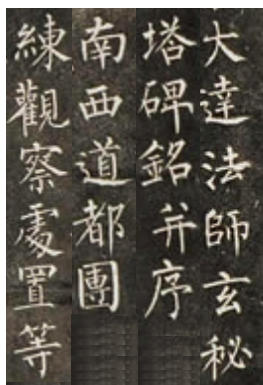 大達法師玄秘
塔碑銘并序
南西道都團
練觀察處置等